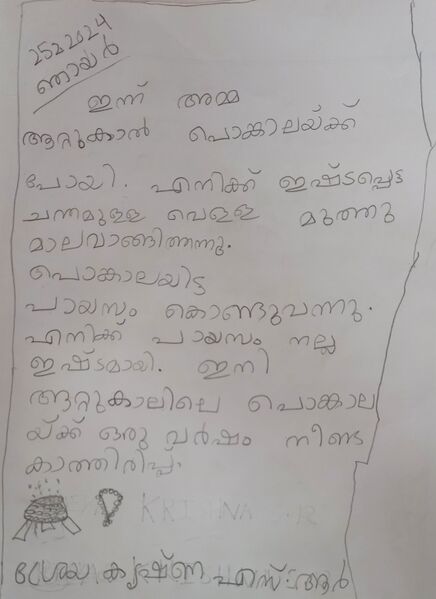 25 2 2024
ഞായർ
ഇന്ന് അമ്മ
ആറ്റുകാൽ പൊങ്കാലയ്ക്ക്
പോയി. എനിക്ക് ഇഷ്ടപ്പെട്ട
ചന്തമുള്ള വെള്ള മുത്തു
മാലവാങ്ങിത്തന്നു.
പൊങ്കാലയിട്ട
പായസും കൊണ്ടുവന്നു.
എനിക്ക് പായസം നല്ല
ഇഷ്ടമായി. ഇനി
ആറ്റുകാലിലെ പൊങ്കാല
യ്ക്ക് ഒരു വർഷം നീണ്ട
കാത്തിരിപ്പ്.
KRISHNA
കൃഷ്ണ എസ്.ആർ